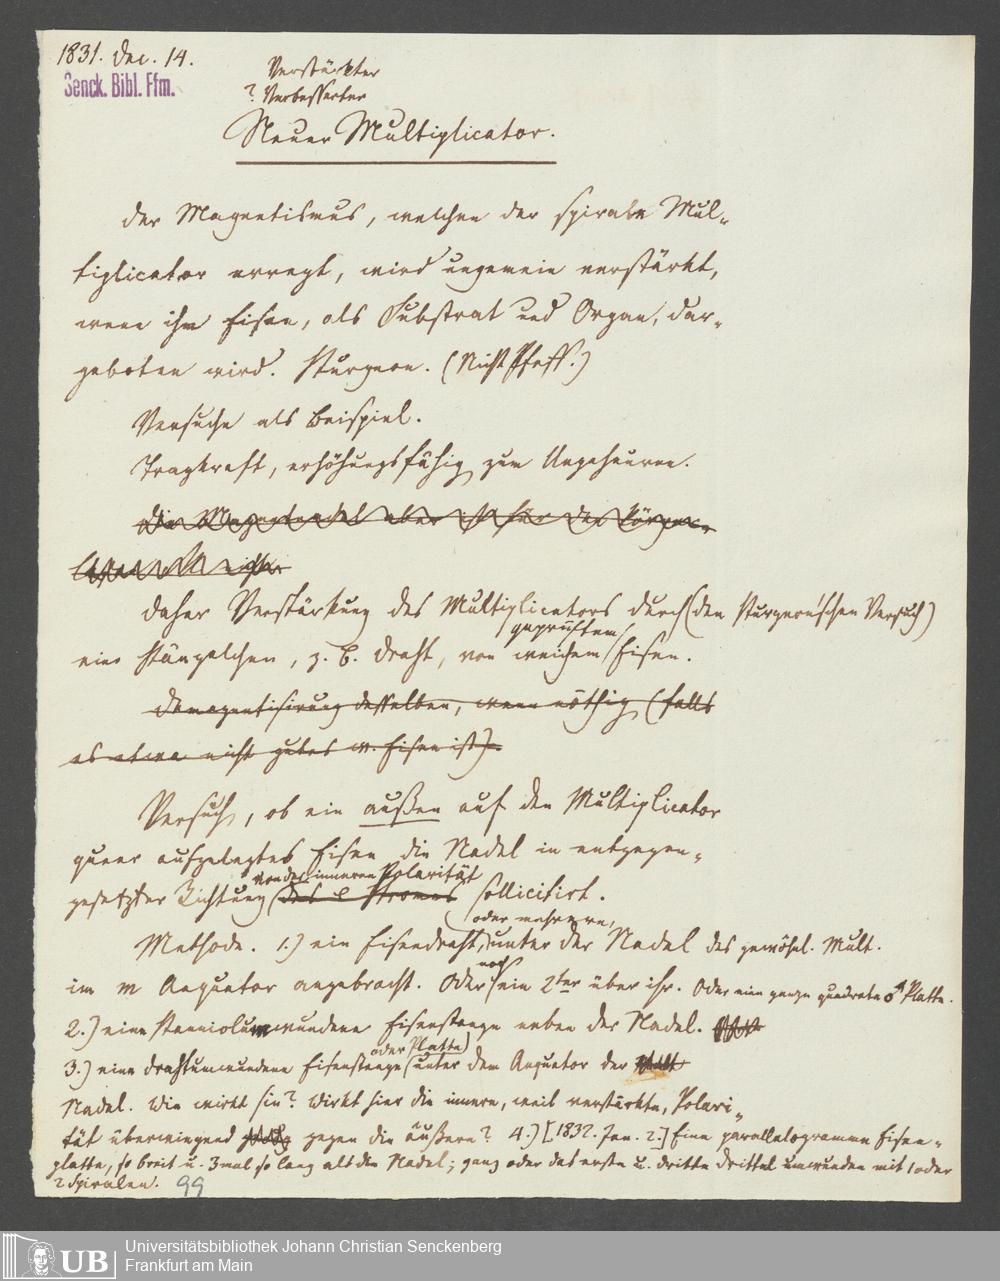 1831. Dec. 14.
Senck. Bibl. Ffm.
Verstärkter
? Verbesserter
Neuer Multiplicator.
Der Magnetismus, welchen der spirale Mul-
tiplicator erregt, wird ungemein verstärkt,
wenn ihm Eisen, als Substrat und Organ, dar-
geboten wird. Sturgeon. (Nicht Pfaff.)
Versuche als Beispiel.
Tragkraft, erhöhungsfähig zum Ungeheuren.
Die Magnetnadel aber ist für der
Daher Verstärkung des Multiplicators durch (den Sturgeon'schen Versuch)
geprüftem
ein Stängelchen, z. B. Draht, von weichem Eisen.
Demagnetisirung desselben, wenn nöthig (falls
es etwa nicht gutes w. Eisen ist).
Versuch, ob ein außen auf den Multiplicator
queer aufgelegtes Eisen die Nadel in entgegen-
von der inneren Polarität
gesetzter Richtung (des e Stromes sollicitirt.
oder mehrere,
Methode. 1.) ein Eisendraht, unter der Nadel des gewöhnl. Mult.
noch
im m Aequator angebracht. Oder ein 2ter über ihr. Oder eine ganze quadrate ♂ Platte.
2.) eine Stanniolumwundene Eisenstange neben der Nadel.
oder Platte)
3.) eine drahtumwundene Eisenstange (unter dem Aequator der
Nadel. Wie wirkt sie? Wirkt hier die innere, weil verstärkte, Polari-
tät überwiegend gegen die äußere? 4.) [1832. Jan. 2.] Eine parallelogramme Eisen-
platte, so breit u. 3mal so lang als die Nadel; ganz oder das erste u. dritte Drittel umwunden mit 1 oder
2 Spiralen. 99
UB
Universitätsbibliothek Johann Christian Senckenberg
Frankfurt am Main